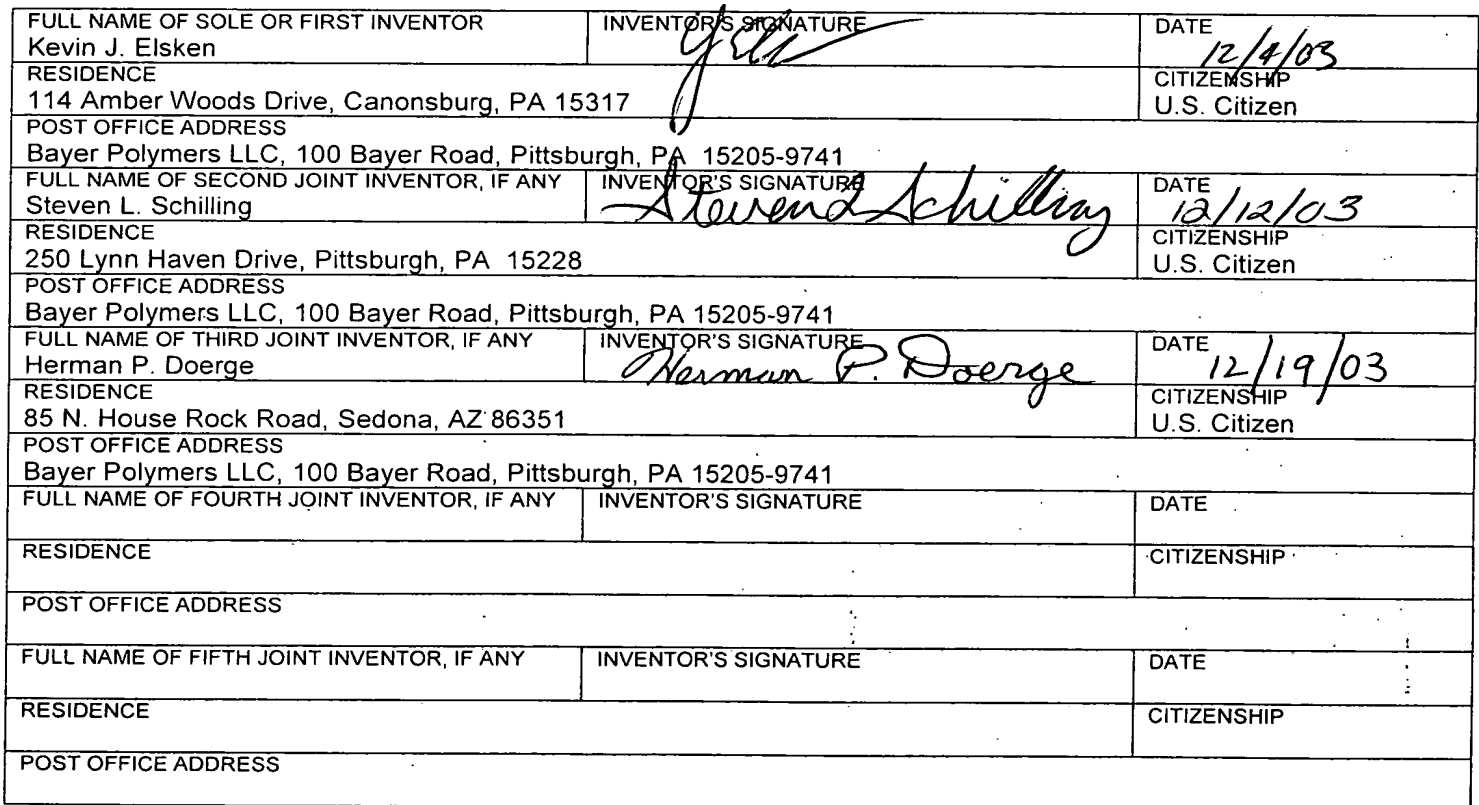 FULL NAME OF SOLE OR FIRST INVENTOR INVENTOR'S SIGNATURE DATE
Kevin J. Elsken 12/4/03
RESIDENCE CITIZENSHIP
114 Amber Woods Drive, Canonsburg, PA 15317 U.S. Citizen
POST OFFICE ADDRESS
Bayer Polymers LLC, 100 Bayer Road, Pittsburgh, PA 15205-9741
FULL NAME OF SECOND JOINT INVENTOR, IF ANY INVENTOR'S SIGNATURE DATE
Steven L. Schilling Steven L Schilling 12/12/03
RESIDENCE CITIZENSHIP
250 Lynn Haven Drive, Pittsburgh, PA 15228 U.S. Citizen
POST OFFICE ADDRESS
Bayer Polymers LLC, 100 Bayer Road, Pittsburgh, PA 15205-9741
FULL NAME OF THIRD JOINT INVENTOR, IF ANY INVENTOR'S SIGNATURE DATE
Herman P. Doerge Herman P. Doerge 12/19/03
RESIDENCE CITIZENSHIP
85 N. House Rock Road, Sedona, AZ 86351 U.S. Citizen
POST OFFICE ADDRESS
Bayer Polymers LLC, 100 Bayer Road, Pittsburgh, PA 15205-9741
FULL NAME OF FOURTH JOINT INVENTOR, IF ANY INVENTOR'S SIGNATURE DATE
RESIDENCE CITIZENSHIP
POST OFFICE ADDRESS
FULL NAME OF FIFTH JOINT INVENTOR, IF ANY INVENTOR'S SIGNATURE DATE
RESIDENCE CITIZENSHIP
POST OFFICE ADDRESS